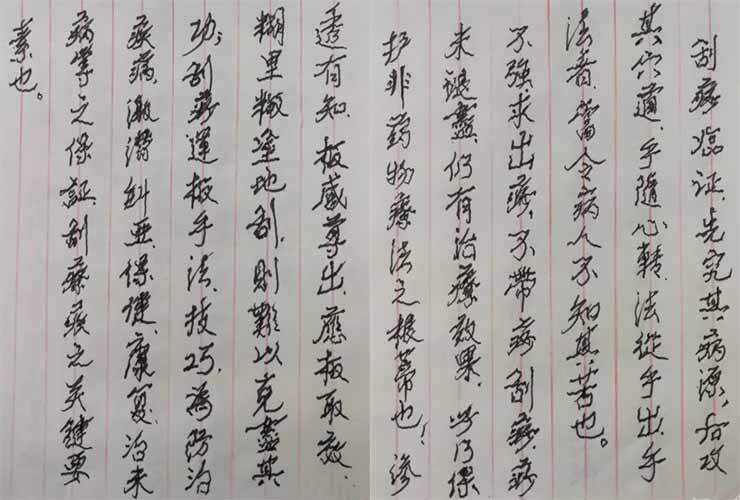 刮痧臨证,先究其病源,后攻
其穴道,手隨心轉,法從手出,手
法者,當令病人不知其苦也。
不強求出痧,不帶病刮痧,痧
未退盡,仍有治療效果,此乃保
护非药物療法之根蒂也!滲
透有知,板感尊出,應板取效,
糊里糊塗地刮,則難以克盡其
功;刮痧運板手法,技巧,為防治
疾病,激潜糾亚,保健,康复,治未
病掌之保証,刮痧療疾之关鍵要
素也。